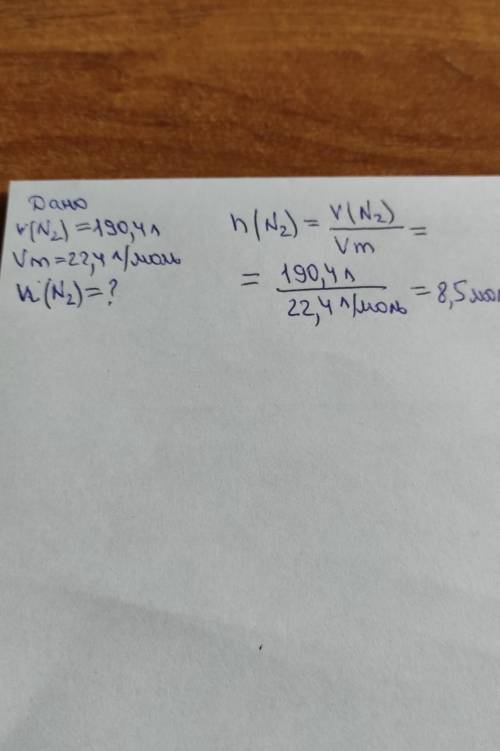 Дано
v(N₂)=190,4л
Vm=22,4 л/моль
n(N₂)=?
n(N₂) = V(N₂)/Vm =
= 190,4л/22,4 л/моль = 8,5мол